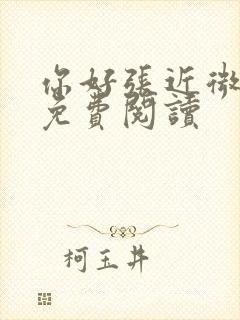 你好張近微
免費閱讀
柯玉井